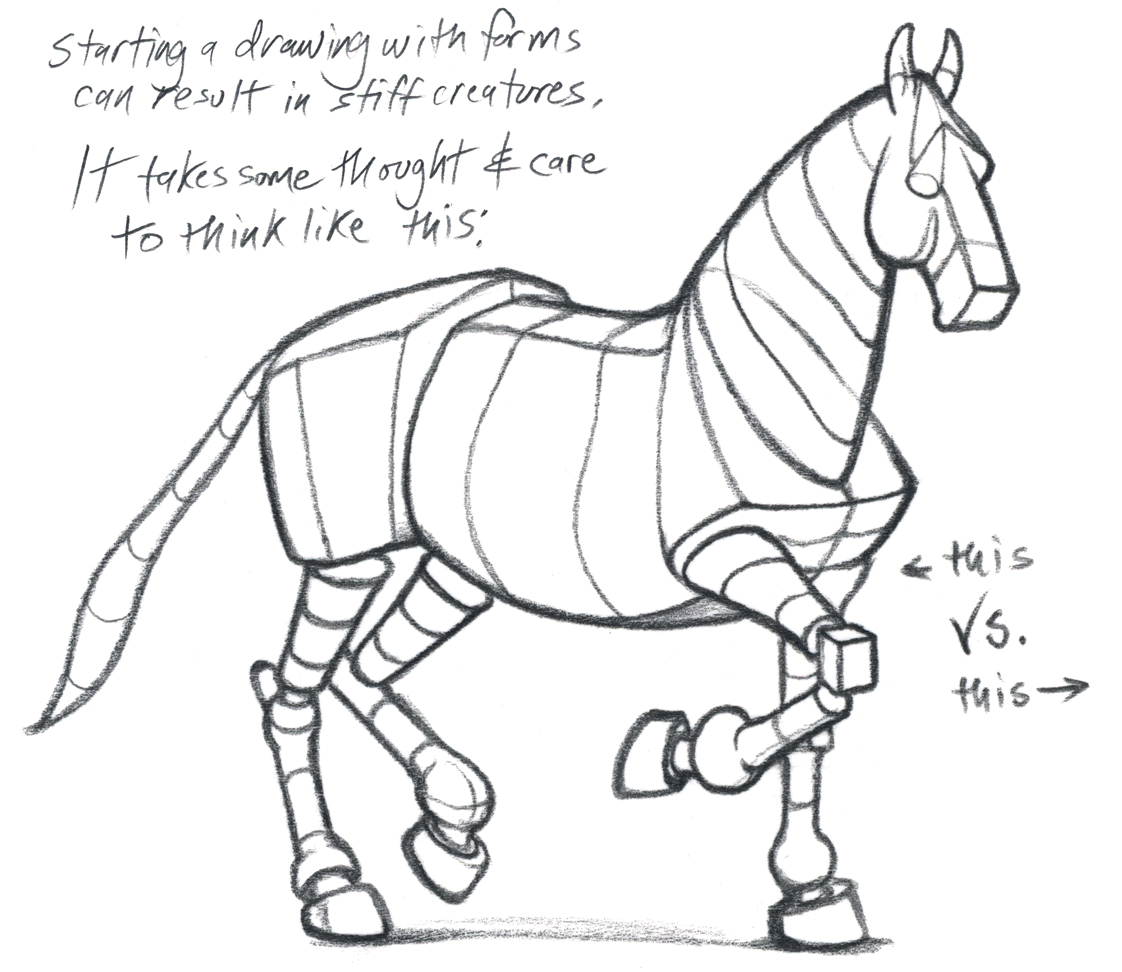 Starting a drawing with forms
can result in stiff creatures.
It takes some thought & care
to think like this:
← this
vs.
this →